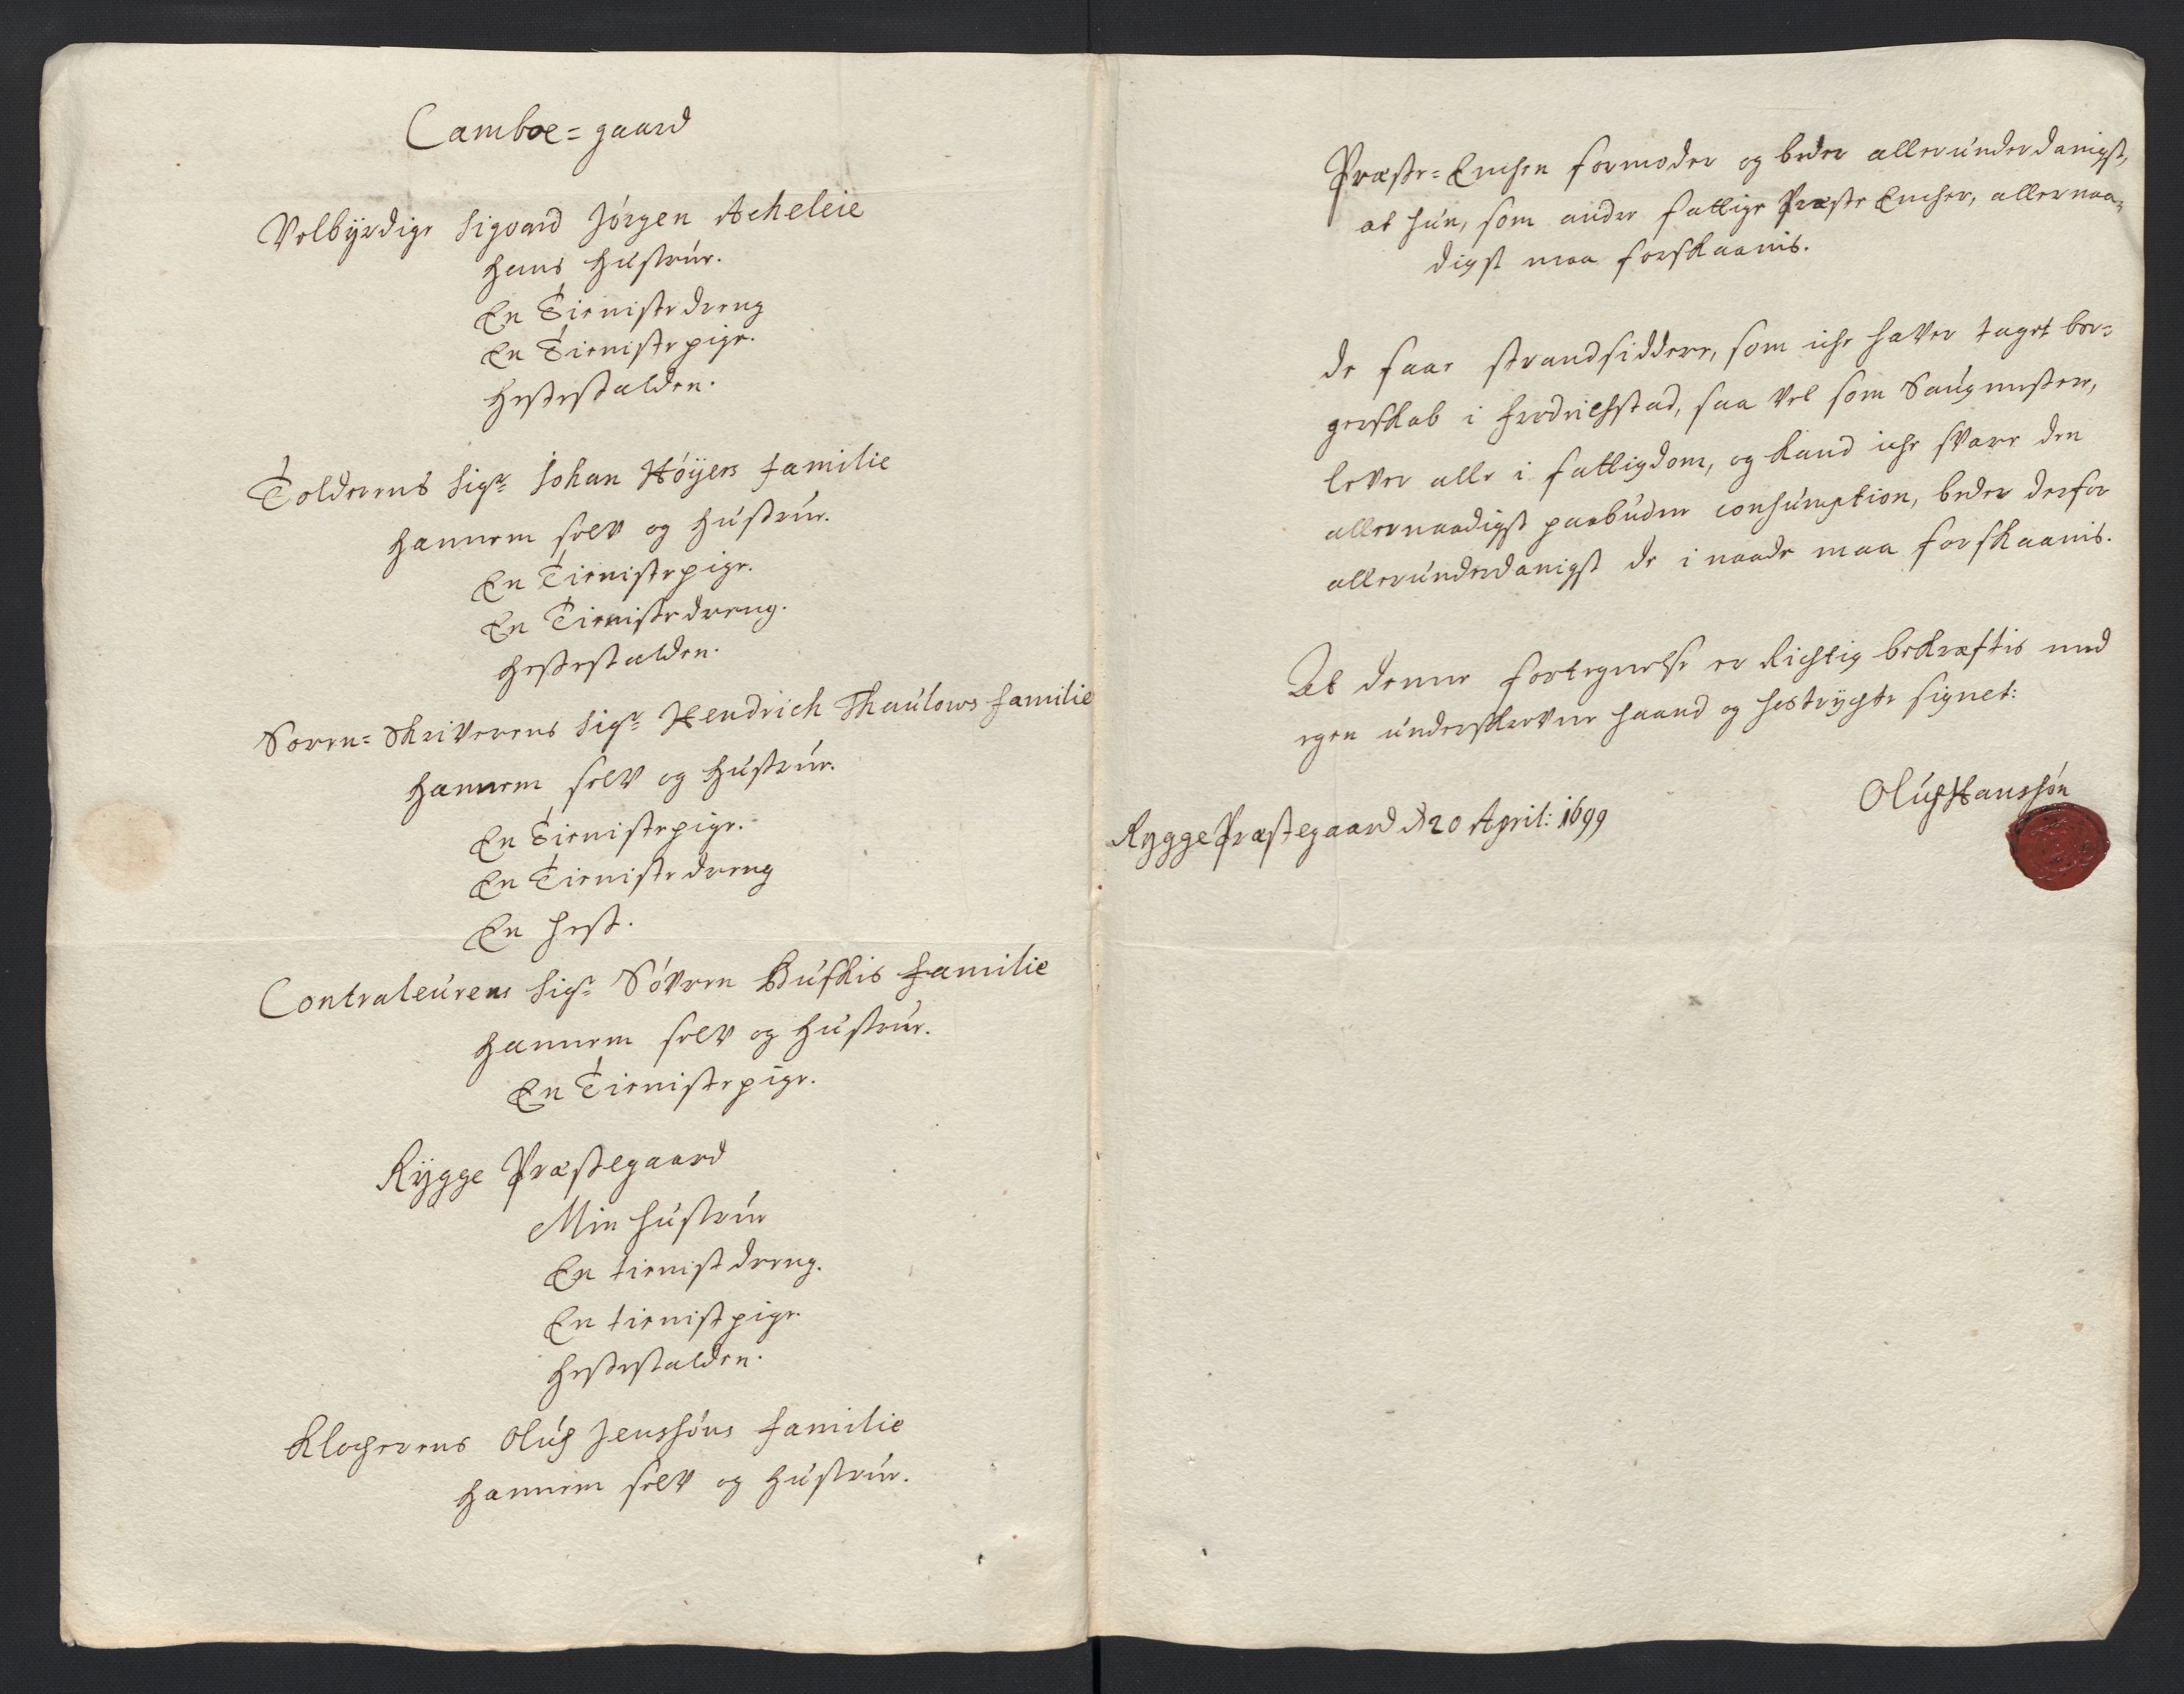 Camboe=gaard
Velbÿrdige Sigvard Jörgen Acheleie
Hans Hustrúr.
En Tienistedreng
En Tienistepige.
Hestestalden.
Tolderens Sigr Johan Höÿers familie
Hannem selv og Hústrúr.
En Tienistepige.
En Tienistedreng.
Hestestalden.
Soren=Skriverens Sigr Hendrich Thaúlows familie
Hannem selv og Hústrúr.
En Tienistepige.
En Tienistedreng
En Hest.
Contraleúrens Sigr Sövren Búskis familie
Hannem selv og Hústrúr.
En Tienistepige.
Rÿgge Præstegaard
Min Hústrúr
En tienistdreng.
En tienistpige.
Hestestalden.
Klocherens Olúf Jenssöns familie
Hannem selv og Hústrúr.
Præste=Enchen formoder og beder allerúnderdanigst,
at hún, som andre fattige Præste Encher, allernaa=
digst maa forskaanis.
De faae strandsiddere, som iche haver taget bor=
gerskab i Fredrichstad, saa vel som Saugmestere,
lever alle i fattigdom, og kand iche svare den
allernaadigst paabúdne consúmption, beder derfor
allerúnderdanigst de i naade maa forskaanis.
At denne fortegnelse er Richtig bekræftis med
egen únderskrevne haand og hostrÿchte signet:
Olúf Hanssön
Rygge Præstegaard d 20 April: 1699